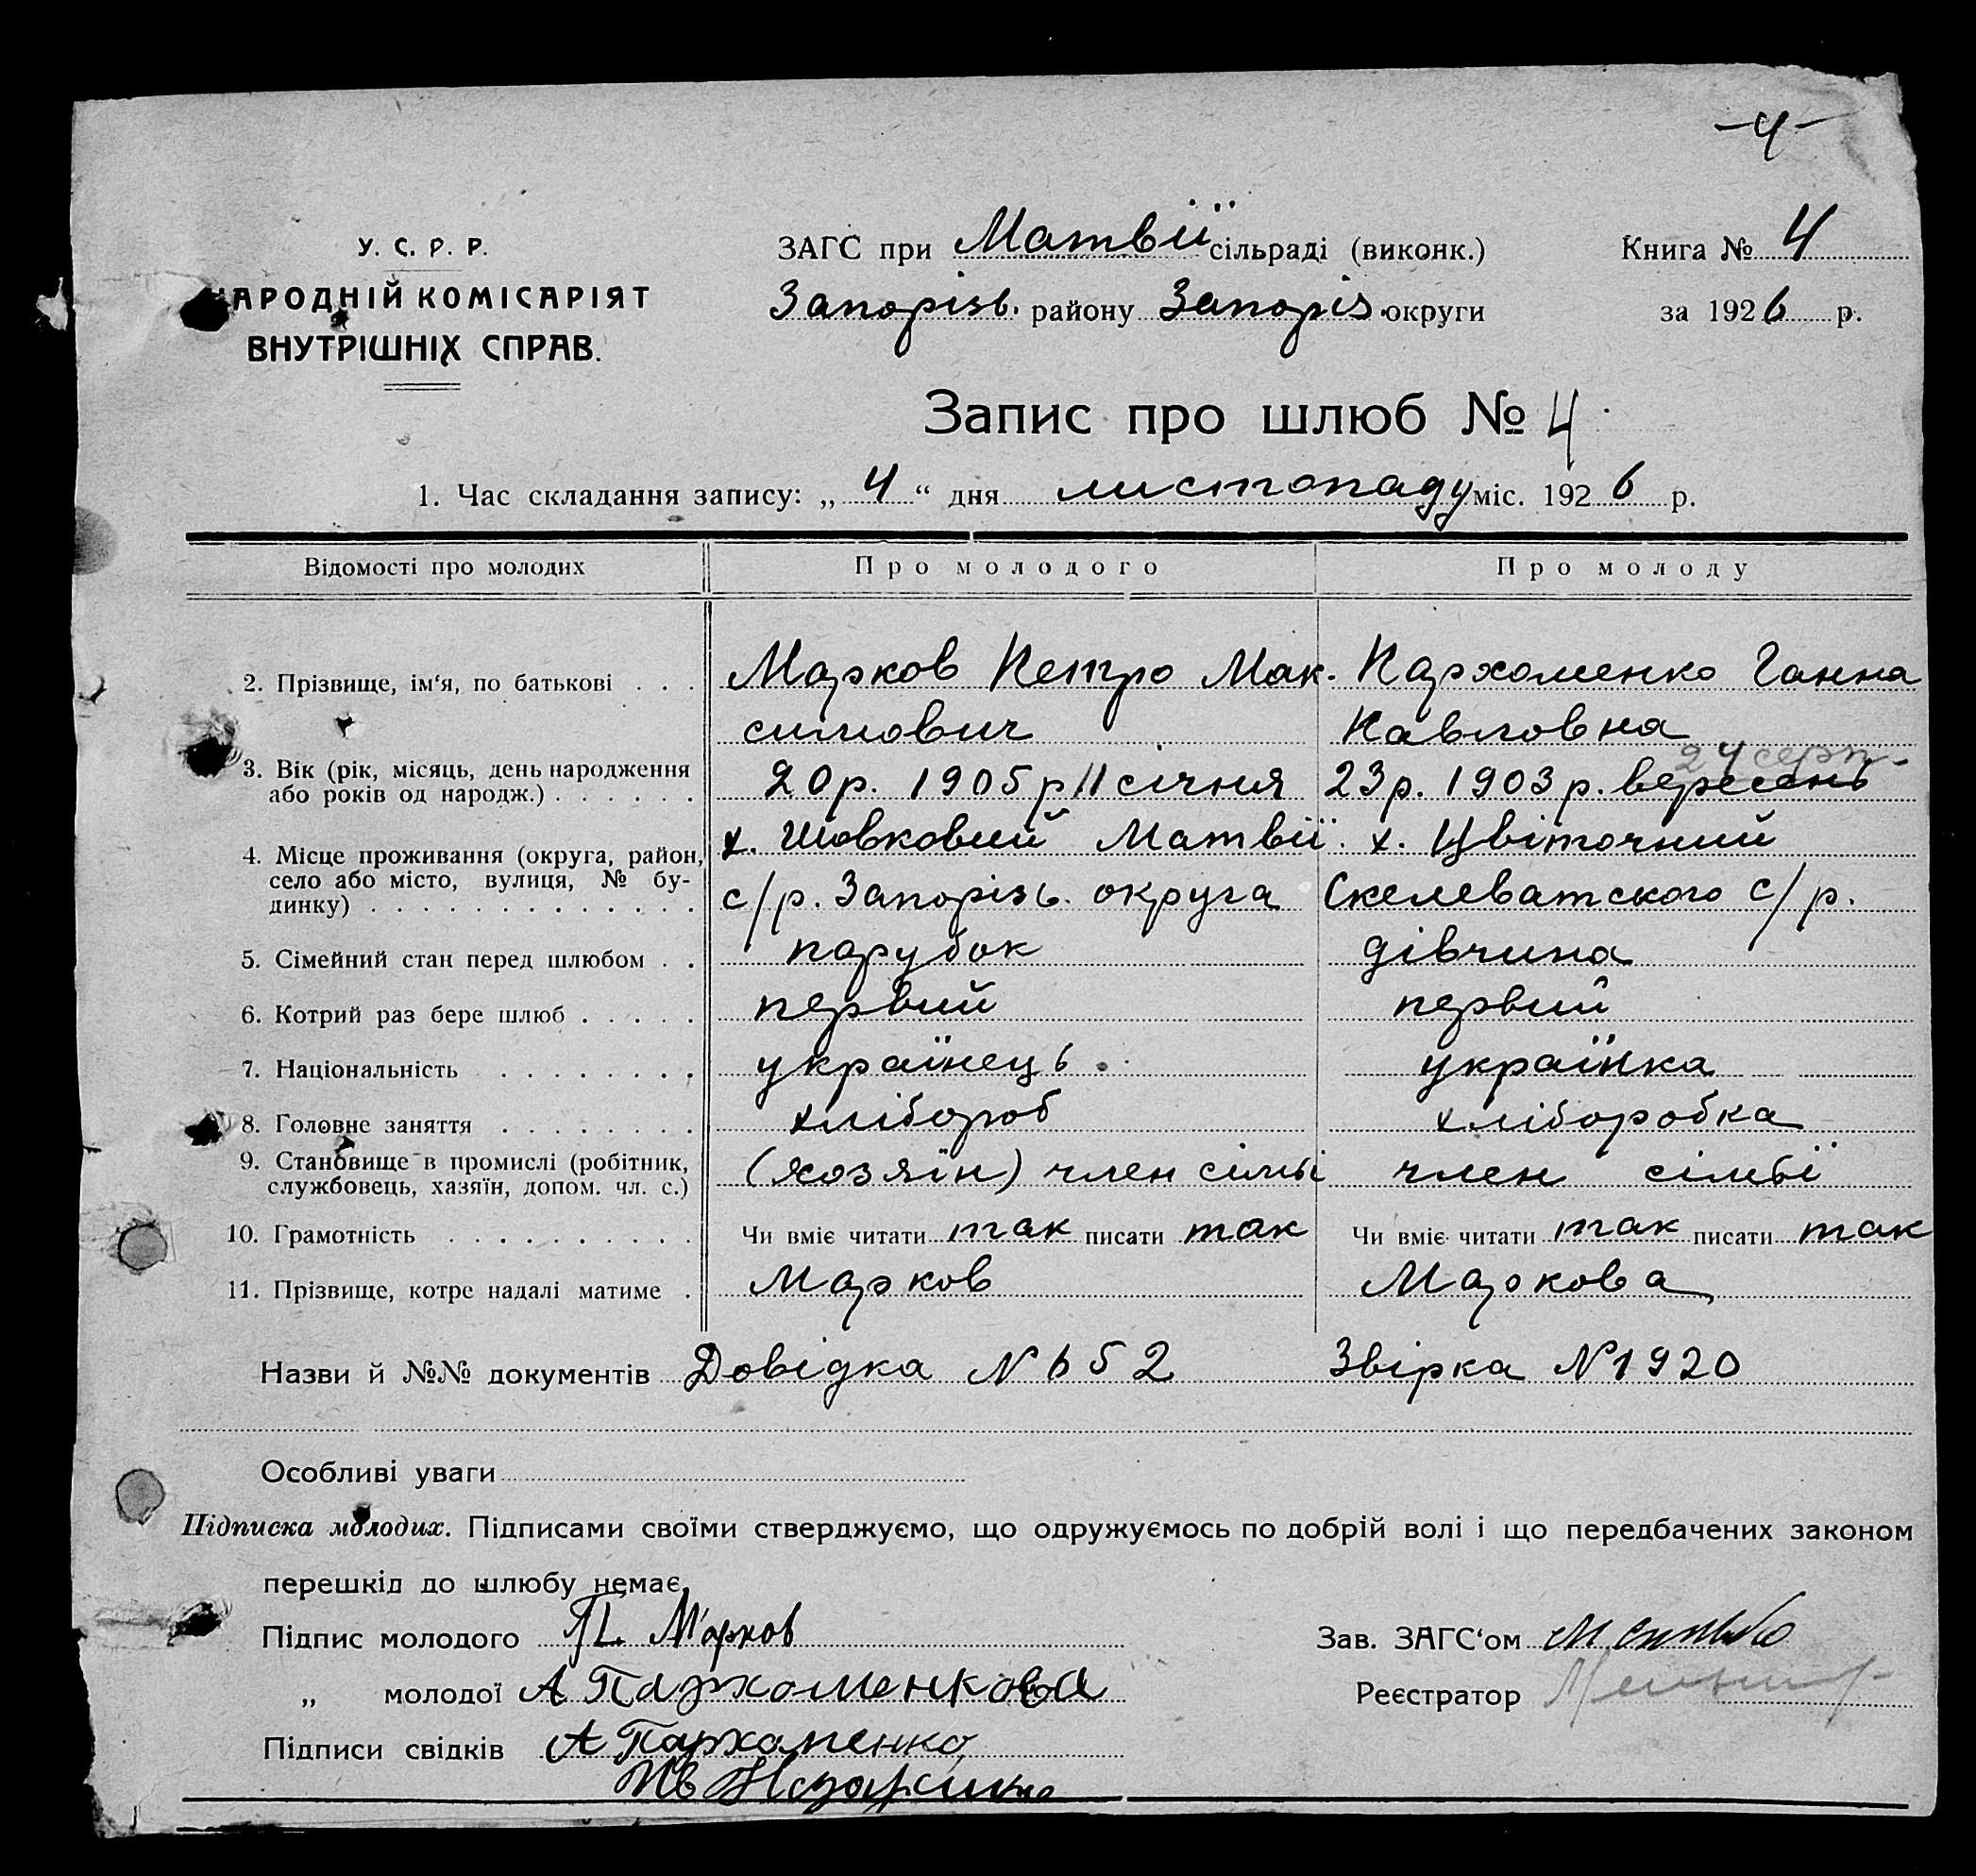 -4-
У. С. Р. Р.
НАРОДНІЙ КОМІСАРІЯТ
ВНУТРІШНІХ СПРАВ.
ЗАГС при Матвії сільраді (виконк.)
Запорізь. району Запоріз. округи
Книга № 4
за 1926 р.
Запис про шлюб № 4
1. Час складання запису: „ 4 “ дня листопаду міс. 1926 р.
Відомості про молодих Про молодого Про молоду
2. Прізвище, ім‘я, по батькові . . . Марков Петро Мак- Пархоменко Ганна
симович Павловна
24 серп.
3. Вік (рік, місяць, день народження 20р. 1905р 11 січня 23р. 1903р. вересень
або років од народж.) . . . . . .
4. Місце проживання (округа, район, х. Шовковий Матвії. х. Цвіточний
село або місто, вулиця, № бу- с/р. Запорізь. округа Скелеватського с/р.
динку) . . . . . . . . . . . . .
5. Сімейний стан перед шлюбом . . парубок дівчина
6. Котрий раз бере шлюб . . . . . первий первий
7. Національність . . . . . . . . українець українка
8. Головне заняття . . . . . . . . хлібороб хліборобка
9. Становище в промислі (робітник, (хозяїн) член сімьї член сімьї
службовець, хазяїн, допом. чл. с.)
10. Грамотність . . . . . . . . . . Чи вміє читати так писати так Чи вміє читати так писати так
11. Прізвище, котре надалі матиме . Марков Маркова
Назви й №№ документів Довідка N 652 Звірка N 1920
Особливі уваги
Підписка молодих. Підписами своїми стверджуємо, що одружуємось по добрій волі і що передбачених законом
перешкід до шлюбу немає.
Підпис молодого П. Марков Зав. ЗАГС‘ом
„ молодої А Пархоменкова Реєстратор
Підписи свідків А Пархоменко
Ив